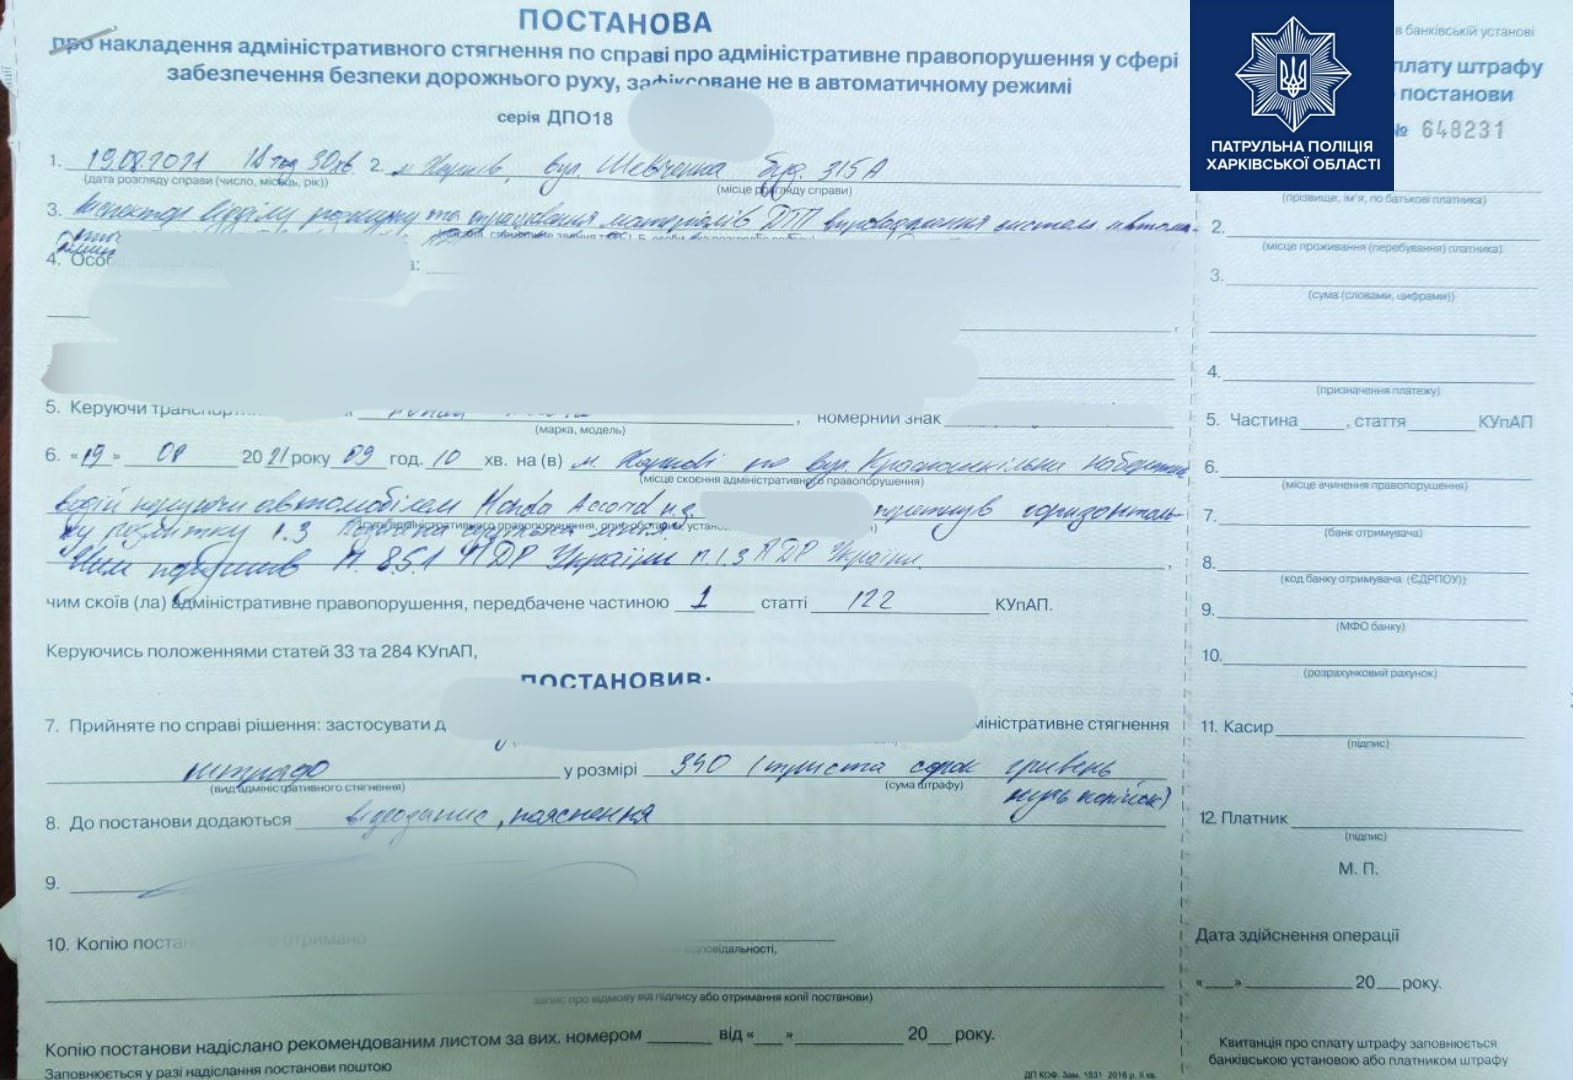 ПОСТАНОВА
про накладення адміністративного стягнення по справі про адміністративне правопорушення у сфері
забезпечення безпеки дорожнього руху, зафіксоване не в автоматичному режимі
серія ДПО18
1. 19.08.2021 18 год 30хв 2. м Харків, вул. Шевченка буд. 315А
(дата розгляду справи (число, місяць, рік)) (місце розгляду справи)
3. Інспектор відділу розшуку та опрацювання матеріалів ДТП впровадження систем автома-
4. Особ
5. Керуючи
(марка, модель)
номерний знак
6. «19» 08 2021 року 09 год. 10 хв. на (в) м. Харкові по вул.
(місце скоєння адміністративного правопорушення)
водій керуючи автомобілем Honda Accord н.з. перетнув горизонталь-
ну розмітку 1.3
Чим порушив п. 8.5.1 ПДР України п.1.3 ПДР України
чим скоїв (ла) адміністративне правопорушення, передбачене частиною 1 статті 122 КУпАП.
Керуючись положеннями статей 33 та 284 КУпАП,
ПОСТАНОВИВ:
7. Прийняте по справі рішення: застосувати д міністративне стягнення
штраф у розмірі 340 (триста сорок гривень
(вид адміністративного стягнення) (сума штрафу)
нуль копійок)
8. До постанови додаються відеозапис, пояснення
9.
10. Копію постан отримано
відповідальності,
запис про відмову від підпису або отримання копії постанови)
Копію постанови надіслано рекомендованим листом за вих. номером від « » 20 року.
Заповнюється у разі надіслання постанови поштою
ДП КОФ. Зам. 1531 2016 р. II кв.
ПАТРУЛЬНА ПОЛІЦІЯ
ХАРКІВСЬКОЇ ОБЛАСТІ
в банківській установі
плату штрафу
постанови
№ 648231
(прізвище, ім'я, по батькові платника)
2.
(місце проживання (перебування) платника)
3.
(сума (словами, цифрами))
4.
(призначення платежу)
5. Частина , стаття КУпАП
6.
(місце вчинення правопорушення)
7.
(банк отримувача)
8.
(код банку отримувача (ЄДРПОУ))
9.
(МФО банку)
10.
(розрахунковий рахунок)
11. Касир
(підпис)
12. Платник
(підпис)
М. П.
Дата здійснення операції
« » 20 року.
Квитанція про сплату штрафу заповнюється
банківською установою або платником штрафу